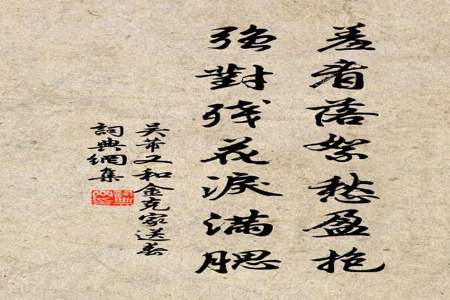 羞看落絮愁盈抱
强對残花淚满腮
吴芾又和金克家送春
詞典網集